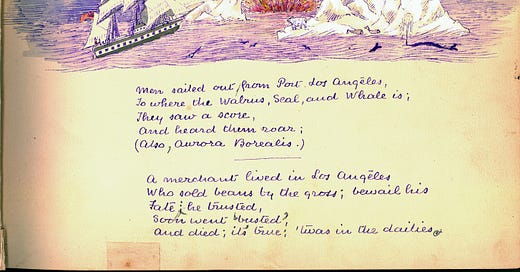 Men sailed out, from Port Los Angëles,
To where the Walrus, Seal, and Whale is;
They saw a score,
And heard them roar;
(Also, Aurora Borealis.)
A merchant lived in Los Angëles
Who sold beans by the gross; bewail his
Fate; he trusted,
Soon went "busted"
And died; it's true; 'twas in the dailies